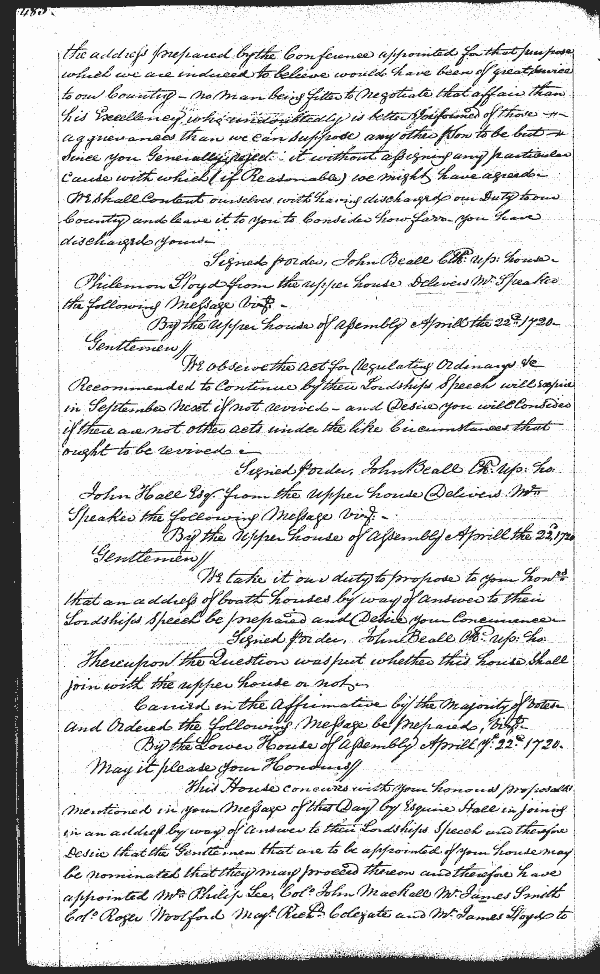 the address prepared by the Conference appointed for that purpose
which we are induced to believe would have been of great service
to our Country - no man being fitter to negotiate that affair than
his Excellency who undoubtedly is better Informed of those
aggreivances than we can suppose any other p̱son to be but
since you Generally reject it without assigning any particular
Cause with which (if Reasonable) we might have agreed -
We shall Content ourselves with having discharged our Duty to our
Country and leave it to you to Consider how farr you have
discharged yours -
Signed p order, John Beall Clk. up: house -
Philemon Lloyd from the upper house Delivers Mr. Speaker
the following Message vizt. -
By the upper house of Assembly Aprill the 22d. 1720 -
Gentlemen//
We observe the act for Regulating Ordinarys &c
Recommended to Continue by their Lordships Speech will expire
in September Next if not revived - and Desire you will Consider
if there are not other acts under the like Circumstances that
ought to be revived -
Signed p order, John Beall Clk. up: ho.
John Hall Esq. from the upper house Delivers Mr.
Speaker the following Message vizt. -
By the upper house of Assembly Aprill the 22d. 1720
Gentlemen//
We take it our duty to propose to your honrs.
that an address of boath houses by way of Answer to their
Lordships Speech be prepared and Desire your Concurrence
Signed p order, John Beall Clk. up: ho
Thereupon the Question was put whether this house shall
join with the upper house or not -
Carried in the Affirmative by the Majority of Votes
and Ordered the following Message be prepared, vizt. -
By the Lower House of Assembly Aprill ye. 22d. 1720 -
May it please your Honours//
This House concurrs with your honours proposalls
mentioned in your Message of this Day by Esquire Hall in joining
in an address by way of Answer to their Lordships Speech and therefore
Desire that the Gentlemen that are to be appointed of your house may
be nominated that they may proceed thereon and therefore have
appointed Mr. Philip Lee, Colo. John Mackall Mr. James Smith
Colo. Roger Woolford Majr. Richd. Colegate and Mr. James Lloyd to